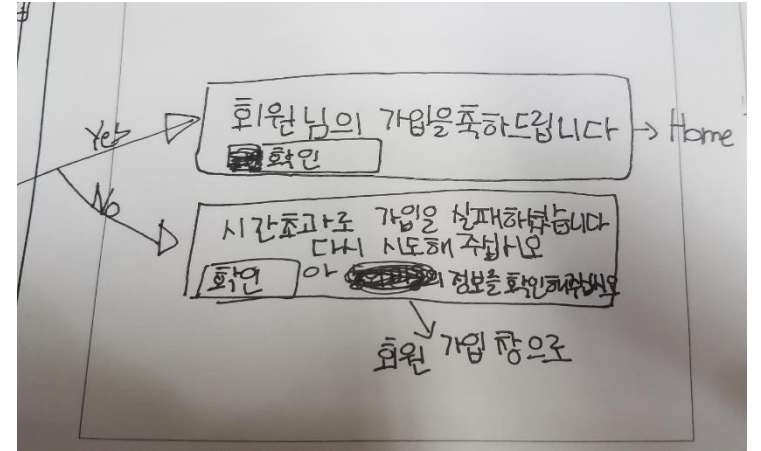 Yes
회원님의 가입을축하드립니다 → Home
확인
No
시간초과로 가입을 실패하셨습니다
다시 시도해 주십시오
확인
의 정보를 확인해주십시오
회원 가입 창으로